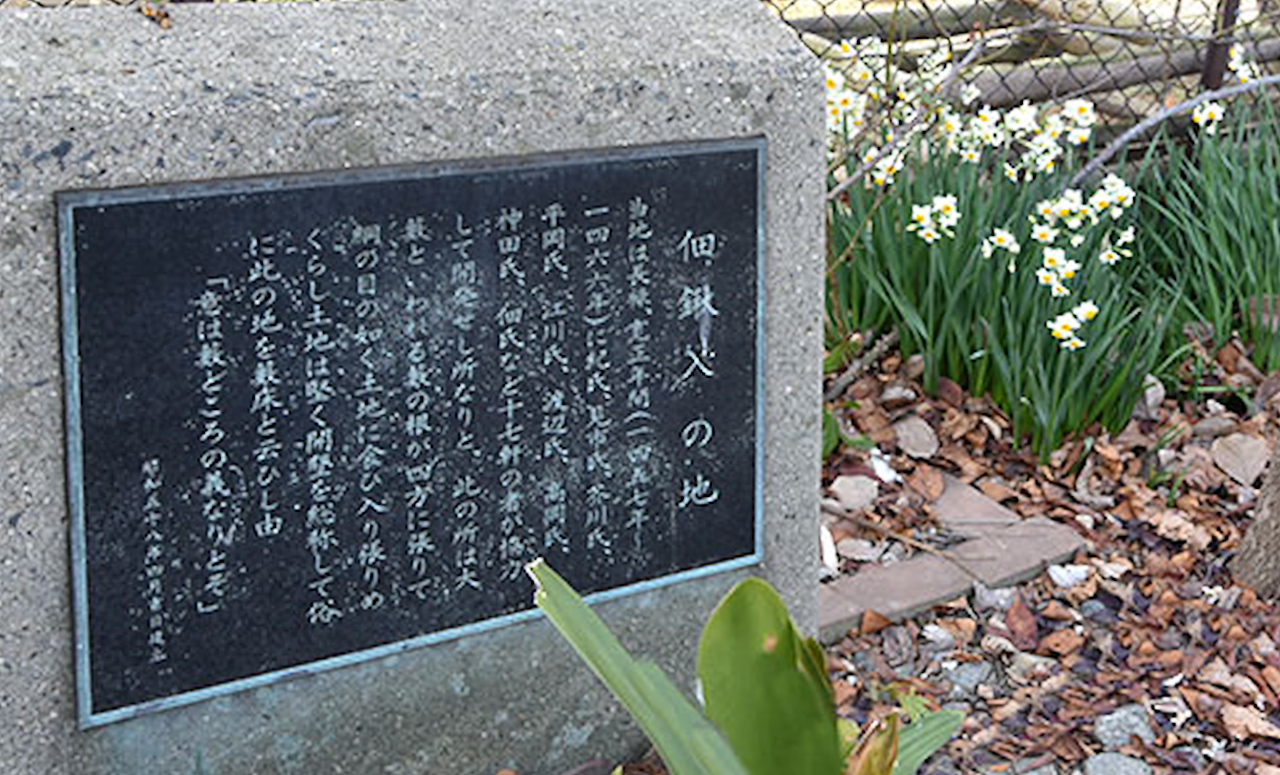 佃鍬入の地
当地は長禄、寛正年間（一四五七年～
一四六六年）に紀氏、見市氏、芥川氏、
平岡氏、江川氏、渡辺氏、高岡氏、
神田氏、佃氏など十七軒の者が協力
して開発せし所なりと、此の所は大
藪と、われる藪の根が四方に張りて
網の目の如く土地に食ひ入り張りめ
くらし土地は堅く開墾を総称して俗
に此の地を藪床と云ひし由
「意は藪ところの義なりとぞ」
昭和五十八年四月